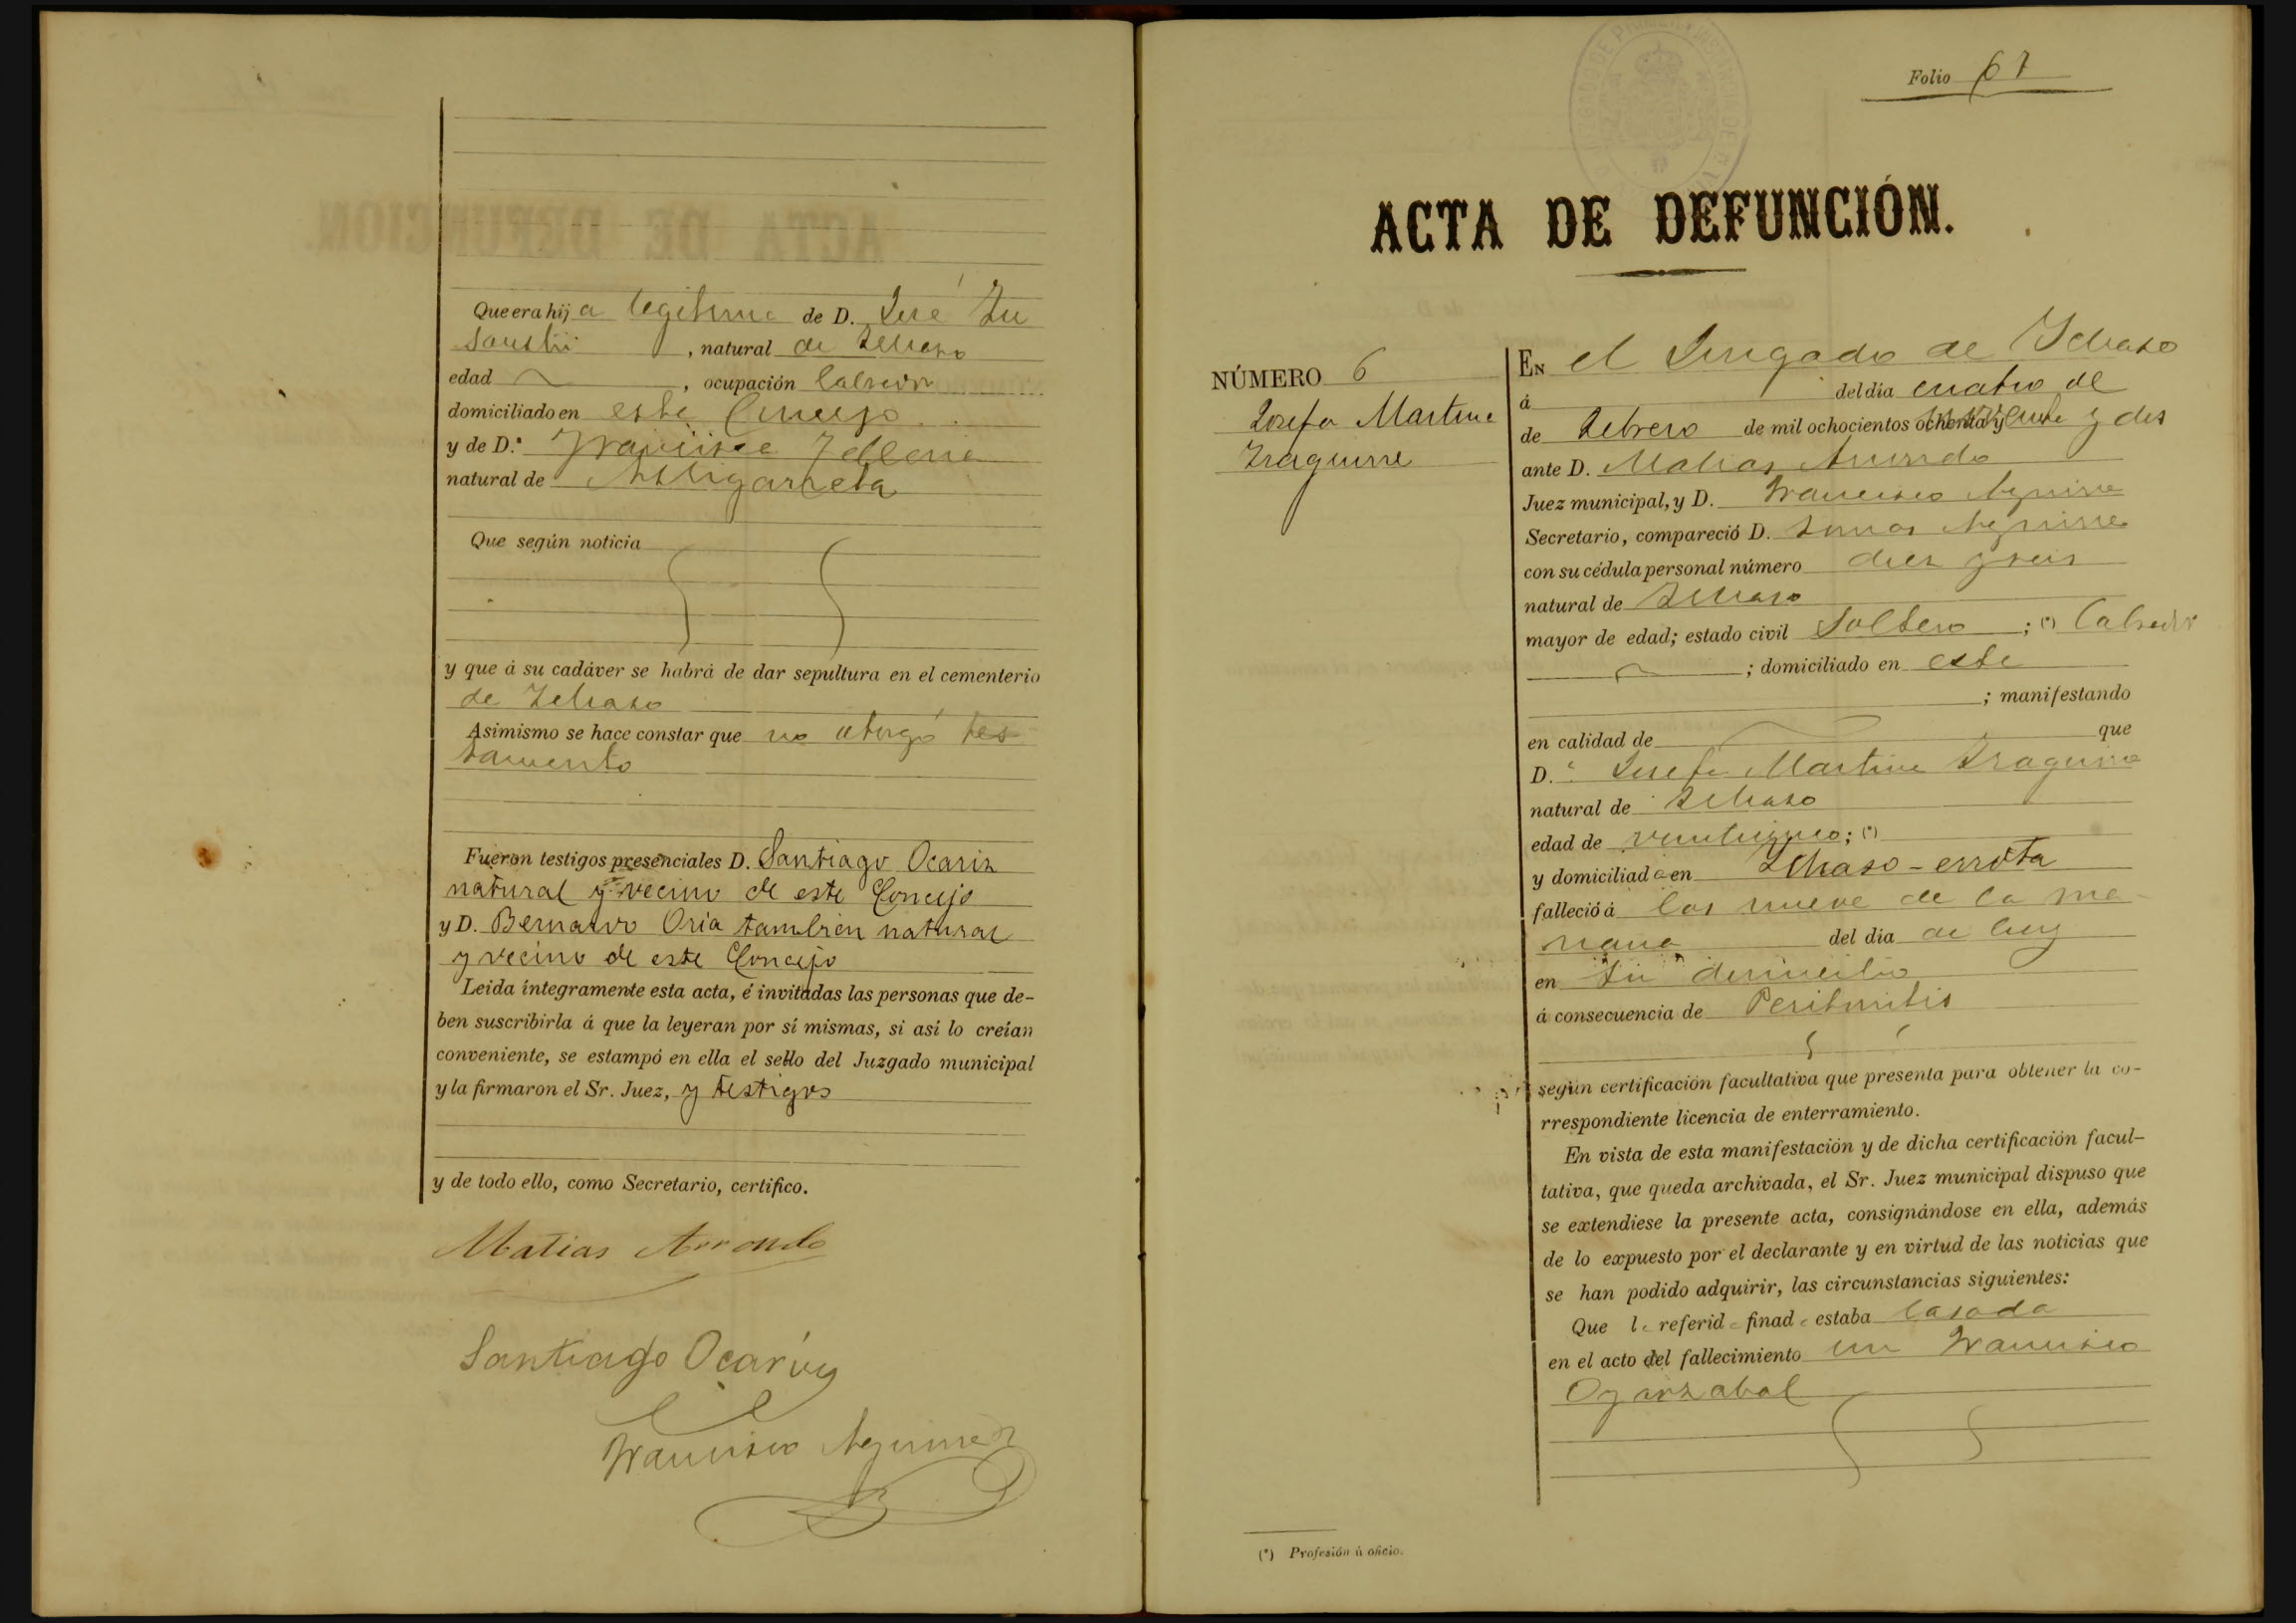 Que era hija legitima de D. José Yn
sausti, natural de Ichaso
edad, ocupación labrador
domiciliado en este Concejo
y de D.ª Francisca
natural de Astigarreta
Que según noticia
y que á su cadáver se habrá de dar sepultura en el cementerio
de Ichaso
Asimismo se hace constar que no otorgó tes-
tamento
Fueron testigos presenciales D. Santiago Ocariz
natural y vecino de este Concejo
y D. Bernardo Oria tambien natural
y vecino de este Concejo
Leida íntegramente esta acta, é invitadas las personas que de-
ben suscribirla á que la leyeran por sí mismas, si así lo creían
conveniente, se estampó en ella el sello del Juzgado municipal
y la firmaron el Sr. Juez, y testigos
y de todo ello, como Secretario, certifico.
Matias Arrondo
Santiago Ocariz
Francisco Aguirre
Folio 67
ACTA DE DEFUNCIÓN.
NÚMERO 6
Josefa Martina
Iraguirre
EN el Jusgado de Ichaso
á del día cuatro de
de Febrero de mil ochocientos ochenta y noventa y dos
ante D. Matias Arrondo
Juez municipal, y D. Francisco Aguirre
Secretario, compareció D. Tomas Aguirre
con su cédula personal número diez y seis
natural de Ichaso
mayor de edad; estado civil Soltero; (*) labrador
; domiciliado en este
; manifestando
en calidad de que
D.ª Josefa Martina Iraguirre
natural de Ichaso
edad de; (*)
y domiciliada en Ichaso-errota
falleció á las nueve de la ma-
ñana del día de hoy
en su domicilio
á consecuencia de Peritonitis
según certificación facultativa que presenta para obtener la co-
rrespondiente licencia de enterramiento.
En vista de esta manifestación y de dicha certificación facul-
tativa, que queda archivada, el Sr. Juez municipal dispuso que
se extendiese la presente acta, consignándose en ella, además
de lo expuesto por el declarante y en virtud de las noticias que
se han podido adquirir, las circunstancias siguientes:
Que la referida finada estaba casada
en el acto del fallecimiento con Francisco
Oyarzabal
(*) Profesión ú oficio.